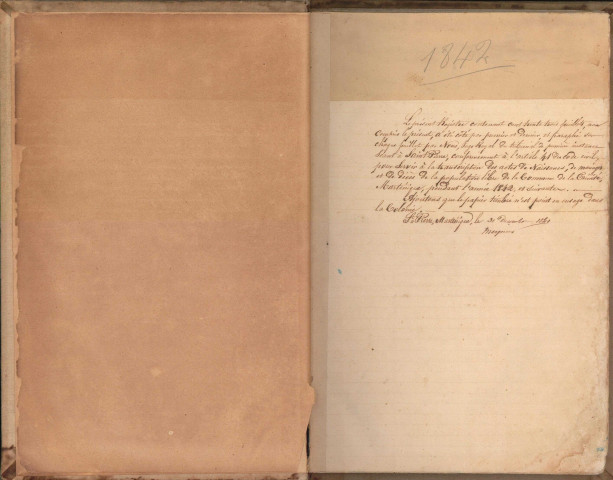 1842
Le présent Registre contenant cent trente trois feuillets, non
compris le présent, a été coté par premier et dernier, et paraphé sur
chaque feuillet par Nous, Juge Royal du tribunal de première instance
séant à Saint Pierre, conformément à l'article 41 du Code civil,
pour servir à la transcription des actes de Naissances, de mariages
et de Décès de la population libre de la Commune de la
Martinique, pendant l'année 1842, et suivantes.
Attestons que le papier timbré n'est point en usage dans
la Colonie.
St Pierre, Martinique, le 31 décembre 1841